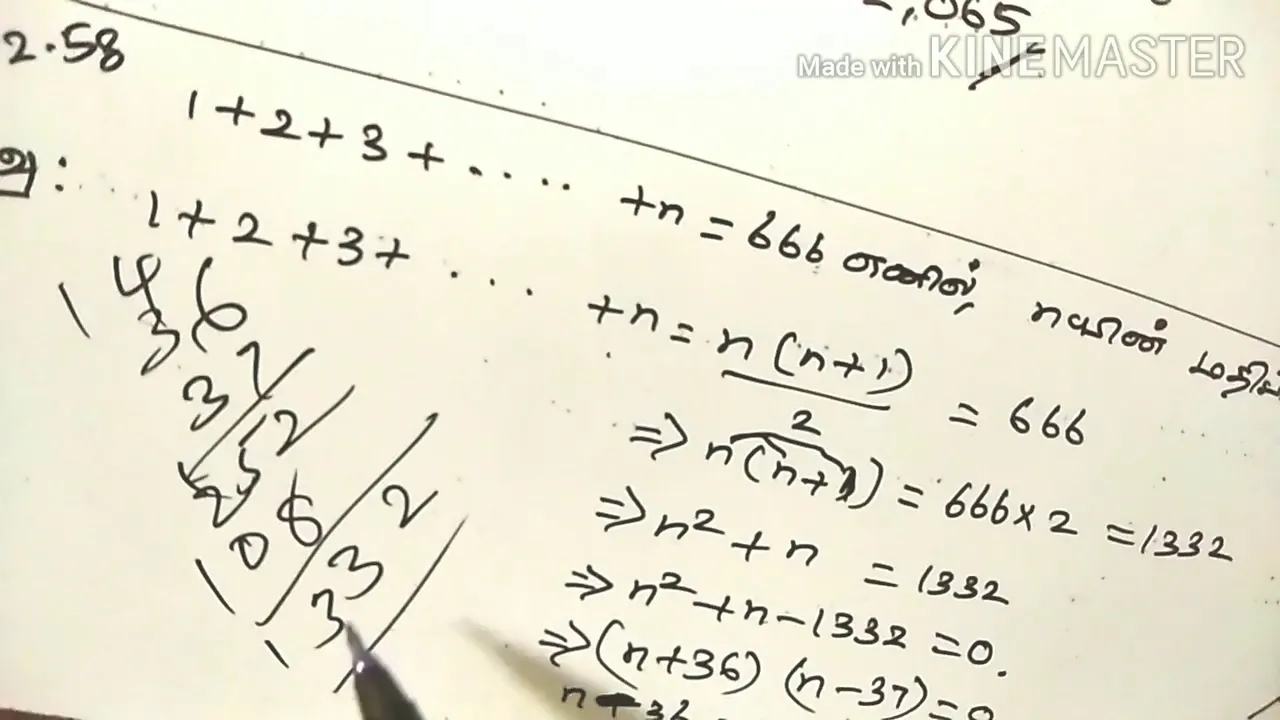 2,065
Made with KINEMASTER
2.58
1+2+3+.....+n=666 எனில், nயின் மதிப்
1+2+3+.....+n=n(n+1)/2 = 666
=> n(n+1) = 666×2 = 1332
=> n²+n = 1332
=> n²+n-1332=0.
=> (n+36) (n-37)=0
1 4 6
3
3 2
1 2
2 5
1 0 8
2
3
1 3